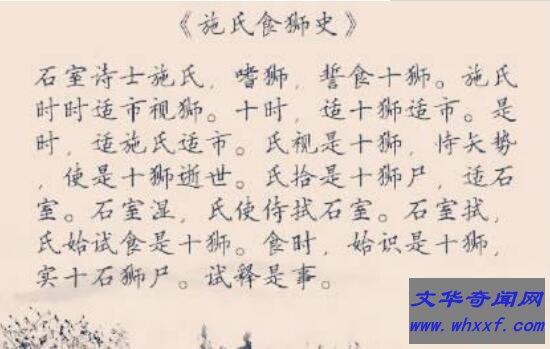 《施氏食狮史》
石室诗士施氏，嗜狮，誓食十狮。施氏
时时适市视狮。十时，适十狮适市。是
时，适施氏适市。氏视是十狮，恃矢势
，使是十狮逝世。氏拾是十狮尸，适石
室。石室湿，氏使侍拭石室。石室拭，
氏始试食是十狮。食时，始识是十狮，
实十石狮尸。试释是事。
文华奇闻网
www.whxxf.com